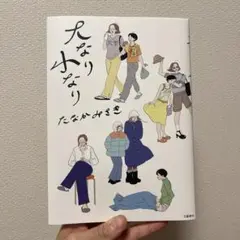 大なり
小なり
たなかみさき